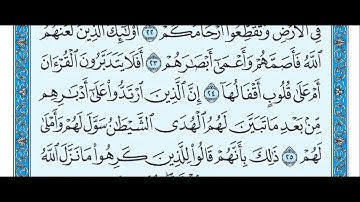 فِي الْأَرْضِ وَتُقَطِّعُوا أَرْحَامَكُمْ ٢٢ أُولَٰئِكَ الَّذِينَ لَعَنَهُمُ
اللَّهُ فَأَصَمَّهُمْ وَأَعْمَىٰ أَبْصَارَهُمْ ٢٣ أَفَلَا يَتَدَبَّرُونَ الْقُرْءَانَ
أَمْ عَلَىٰ قُلُوبٍ أَقْفَالُهَا ٢٤ إِنَّ الَّذِينَ ارْتَدُّوا عَلَىٰ أَدْبَارِهِم
مِّن بَعْدِ مَا تَبَيَّنَ لَهُمُ الْهُدَى الشَّيْطَانُ سَوَّلَ لَهُمْ وَأَمْلَىٰ
لَهُمْ ٢٥ ذَٰلِكَ بِأَنَّهُمْ قَالُوا لِلَّذِينَ كَرِهُوا مَا نَزَّلَ اللَّهُ